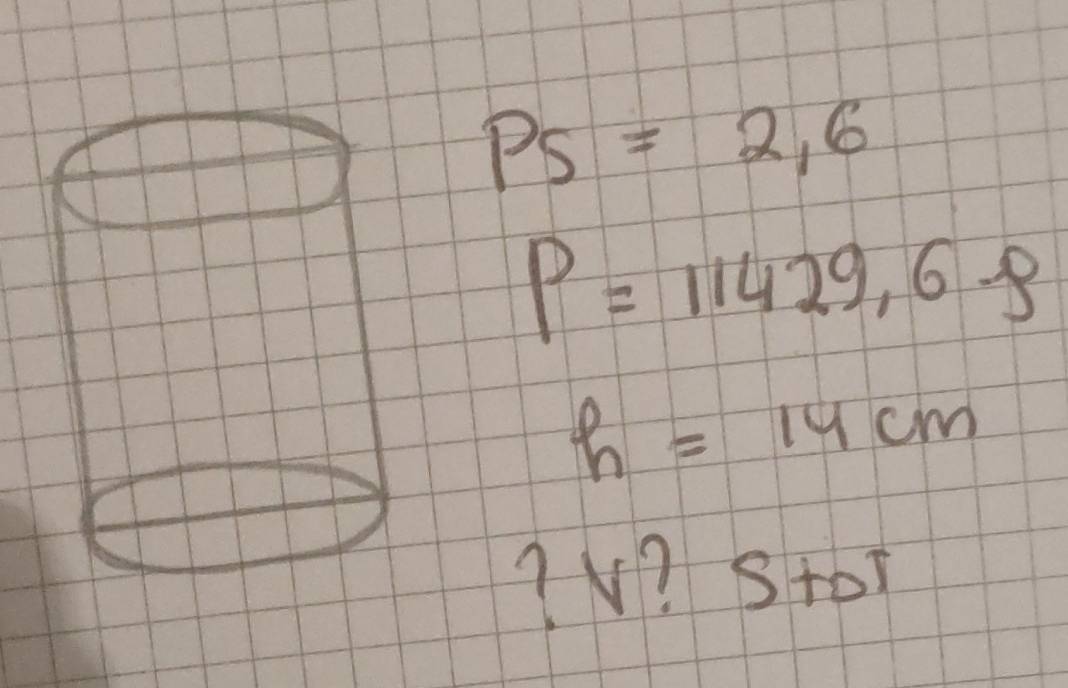 Ps = 2,6
P = 11429,6 g
h = 14 cm
? V? Stot